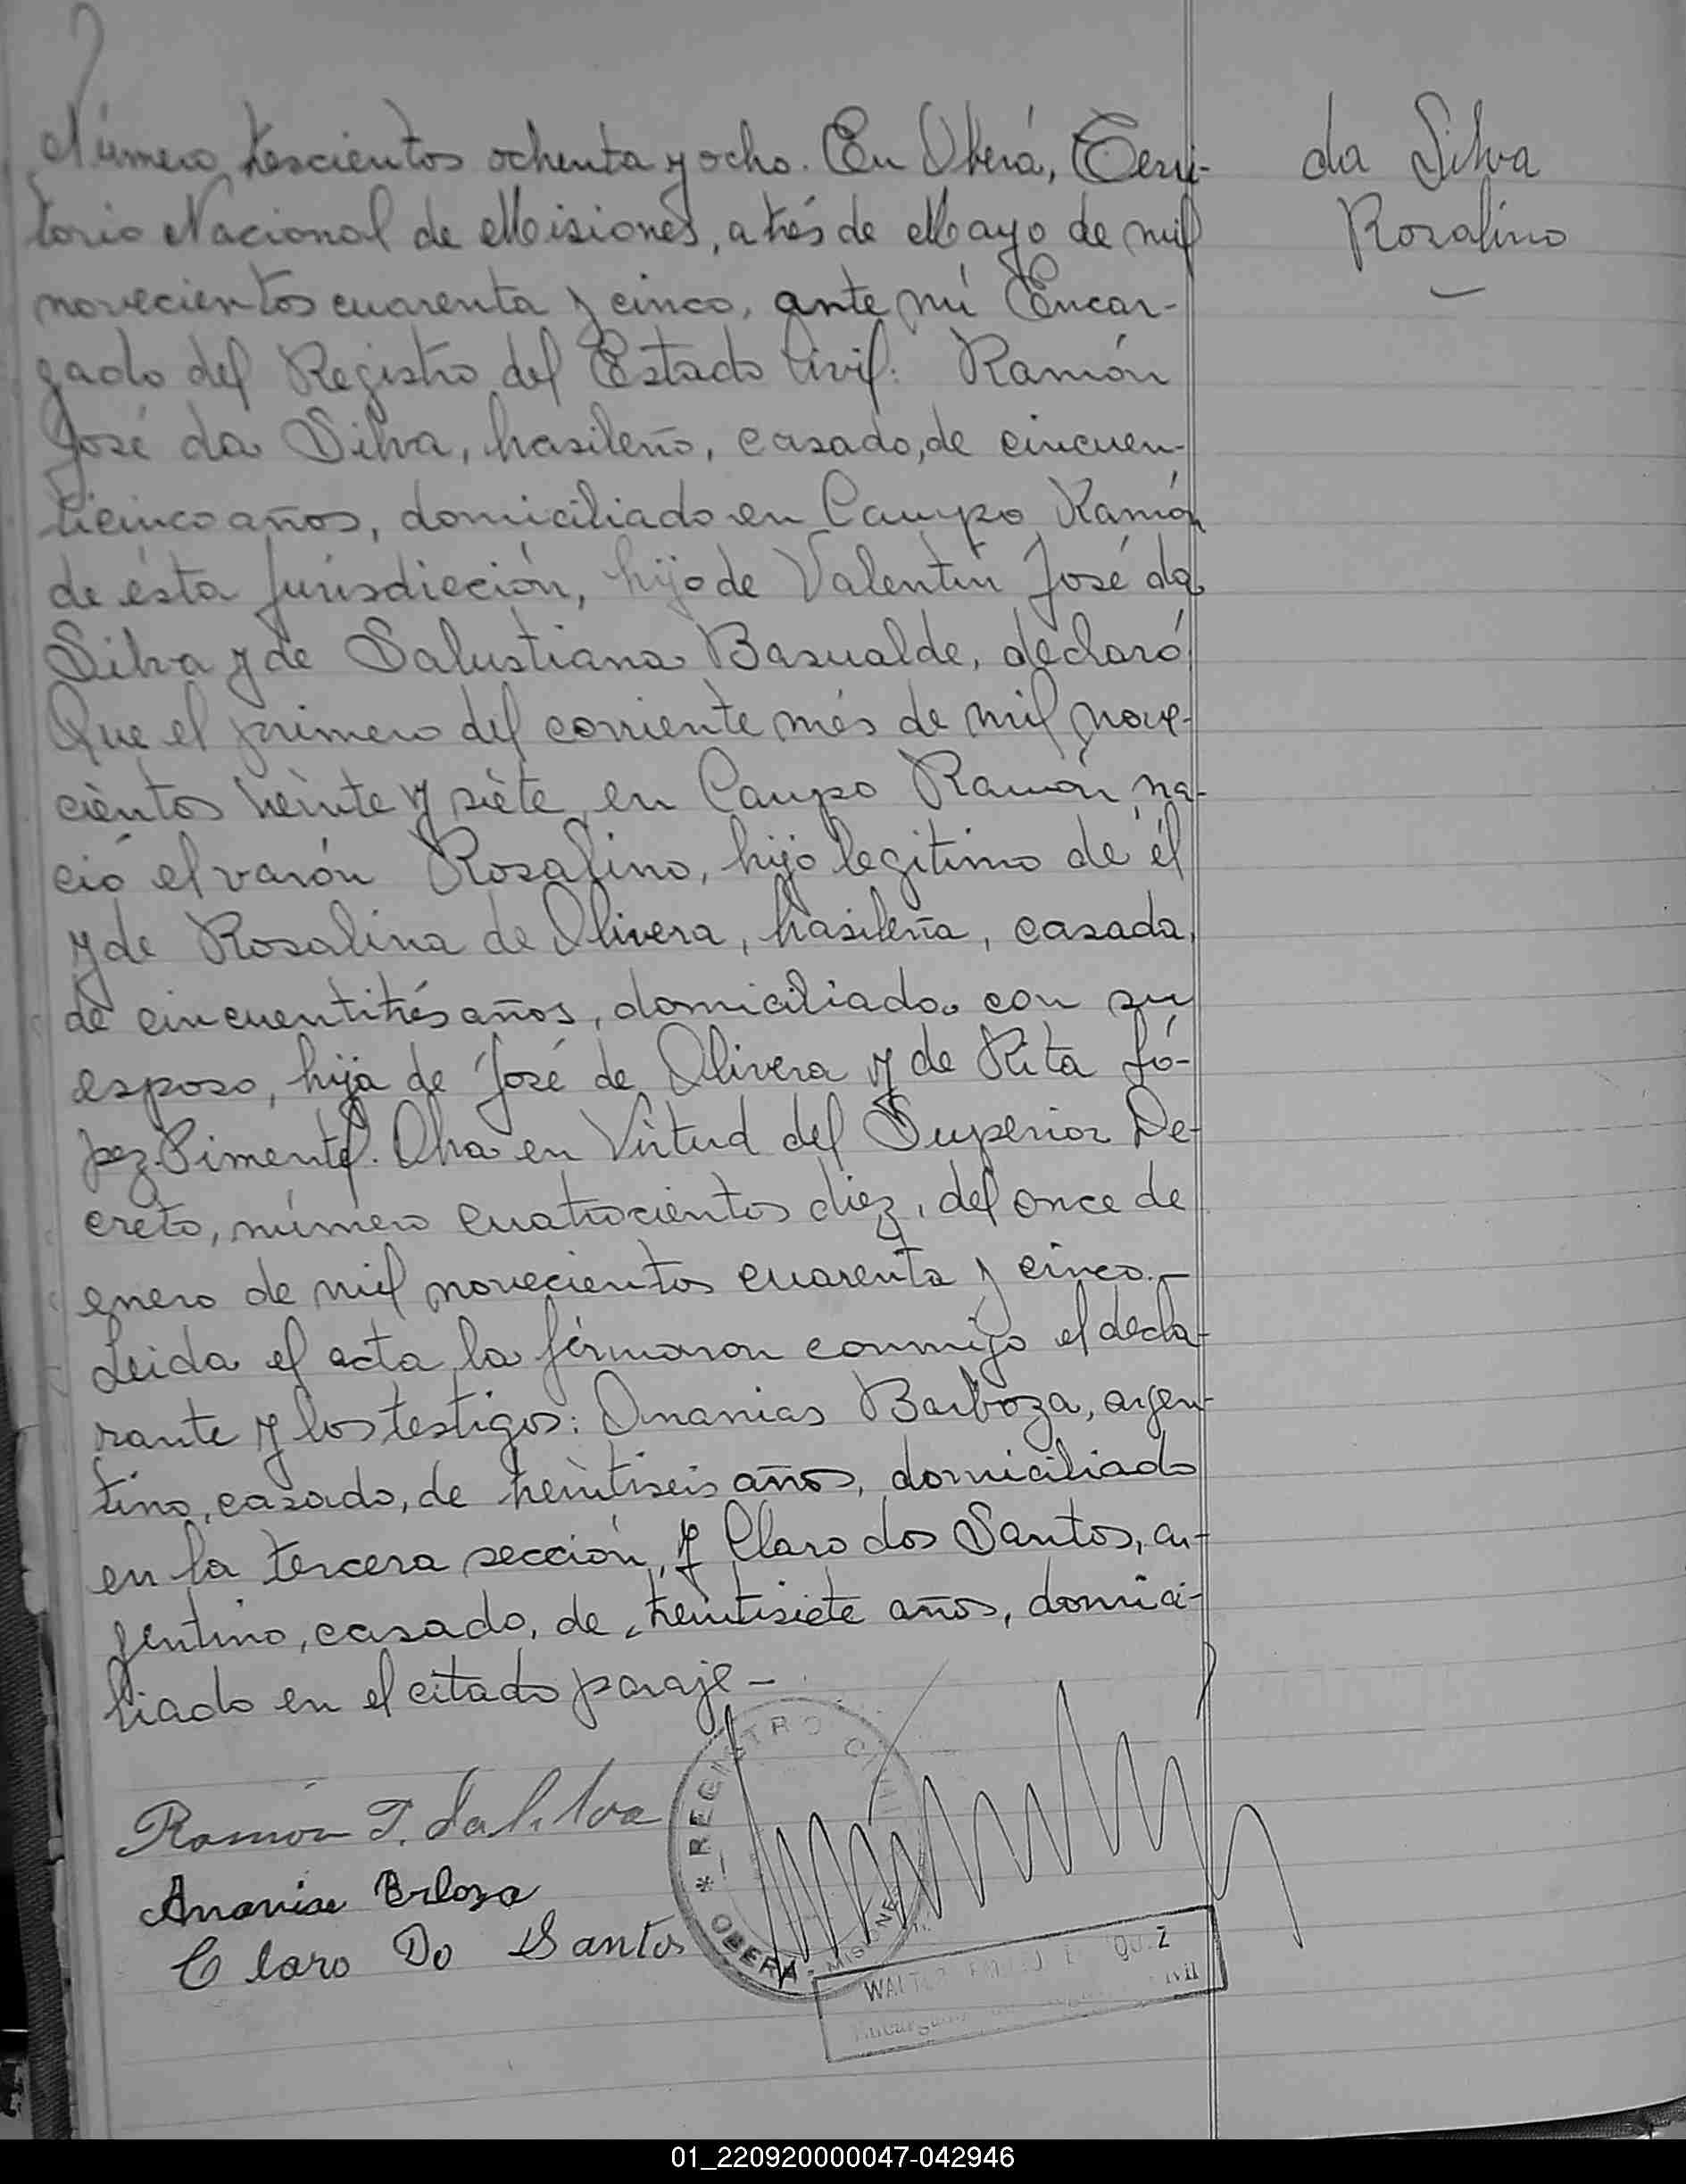 Número trescientos ochenta y ocho. En Oberá, Terri-
torio Nacional de Misiones, a trés de Mayo de mil
novecientos cuarenta y cinco, ante mí Encar-
gado del Registro del Estado Civil: Ramón
José da Silva, brasileño, casado, de cincuen-
ticinco años, domiciliado en Campo Ramón
de ésta jurisdicción, hijo de Valentín José da
Silva y de Salustiana Basualde, declaró
Que el primero del corriente més de mil nove-
cientos veinte y siete, en Campo Ramón, na-
ció el varón Rosalino, hijo legitimo de él
y de Rosalina de Olivera, brasileña, casada,
de cincuentitrés años, domiciliada con su
esposo, hija de José de Olivera y de Rita Ló-
pez Pimentel. Obra en Virtud del Superior De-
creto, número cuatrocientos diez, del once de
enero de mil novecientos cuarenta y cinco.-
Leida el acta la firmaron conmigo el decla-
rante y los testigos: Ananias Barboza, argen-
tino, casado, de treintiseis años, domiciliado
en la tercera sección, y Claro dos Santos, ar-
gentino, casado, de treintisiete años, domici-
liado en el citado paraje-
da Silva
Rosalino
Ramón J. da Silva
Ananias Brboza
Claro Do Santos
* REGISTRO CIVIL
OBERA - MISIONES
01_220920000047-042946